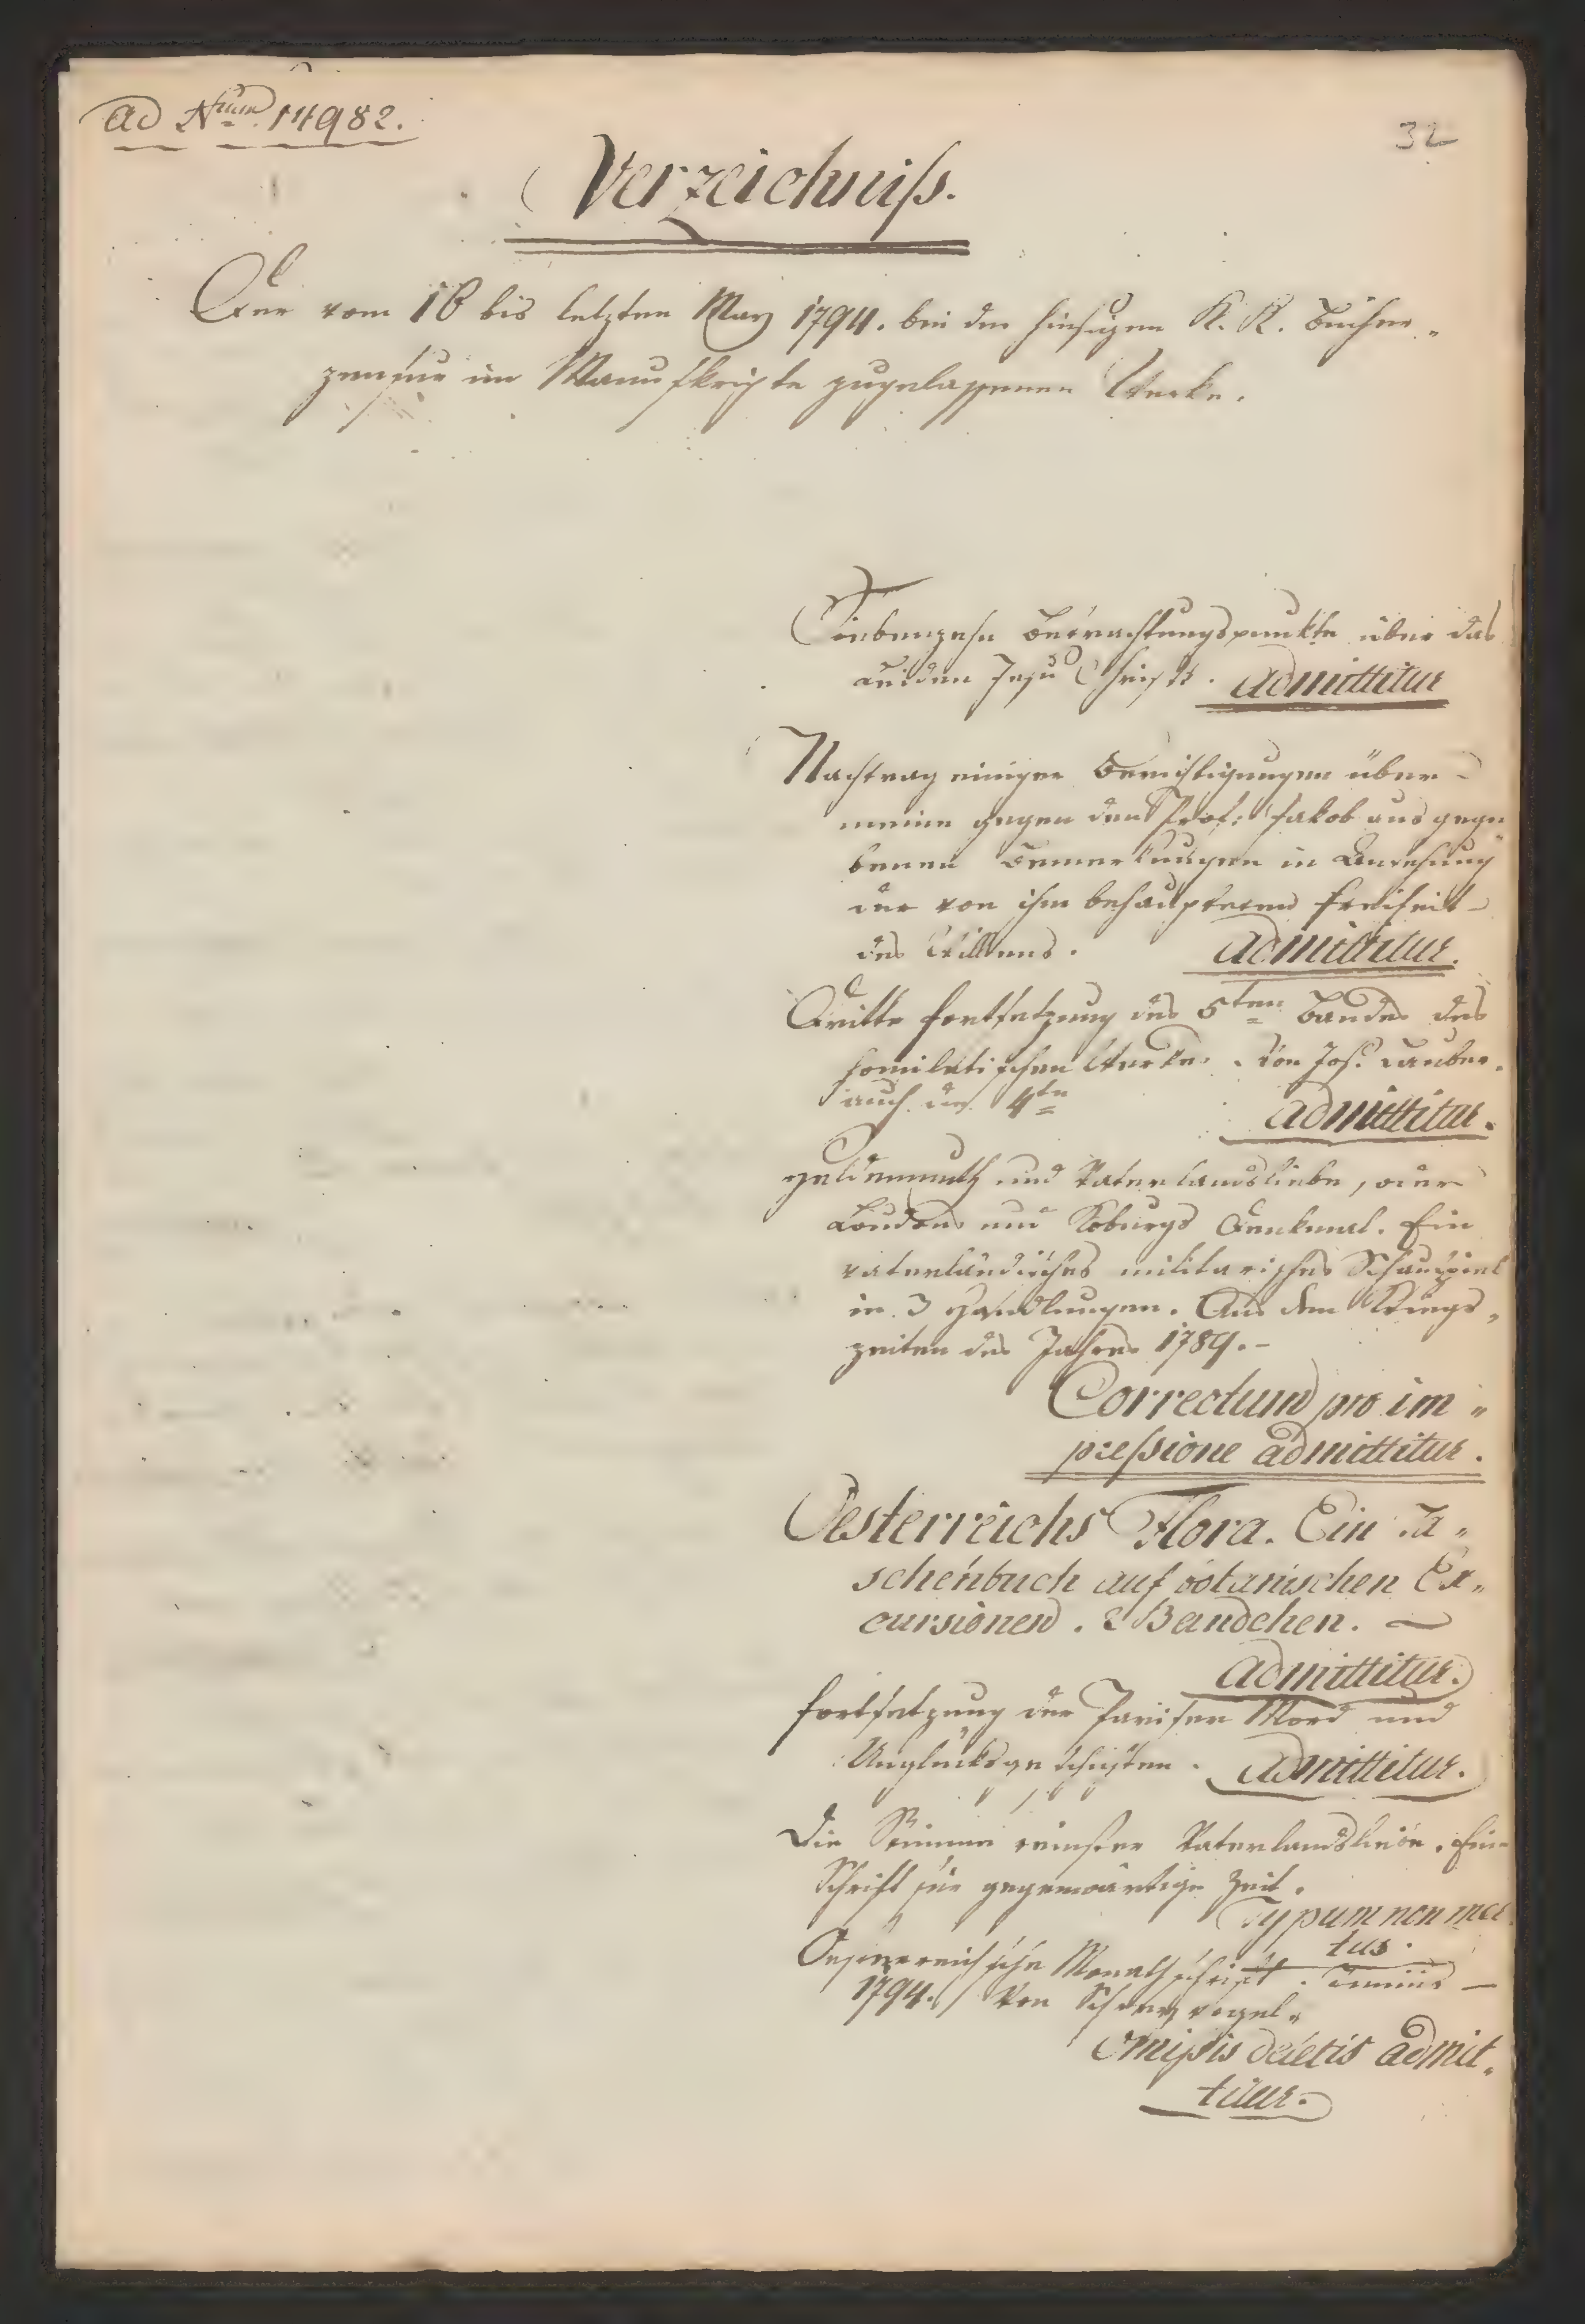 ad Num 14982.
32
Verzeichniß.
Der vom 16 bis letzten May 1794. bei der hiesigen K. K. Bücher„
zensur im Manuskripte zugelassenen Werke.
Siebenzehn Betrachtungspunkte über das
Leiden Jesu Christi. admittitur
Nachtrag einiger Berichtigungen über
meine gegen den Prof: Jakob aus gege„
benen Bemerkungen in Ansehung
der von ihm behaupteten Freiheit
des Willens. admittitur.
Dritte Fortsetzung des 5ten Bandes des
homiletischen Werkes. Von Jos. Lauber.
auch des 4ten admittitur.
Heldenmuth und Vaterlandsliebe, oder
Loudons und Koburgs Denkmal. Ein
vaterländisches militarisches Schauspiel
in 3 Handlungen. Aus dem Kriegs„
zeiten des Jahres 1789.-
Correctum pro im„
pressione admittitur.
Oesterreichs Flora. Ein Ta„
schenbuch auf botanischen Ex„
cursionen. 2 Bändchen. —
admittitur.
Fortsetzung der Pariser Mord und
Unglücksgeschichten. admittitur.
Die Stimme reinster Vaterlandsliebe. Eine
Schrift für gegenwärtige Zeit.
Typum non mere
tur.
Oesterreichische Monathschrift. Junius —
1794. Von Schreyvogel.
Omissis deletis admit„
titur.